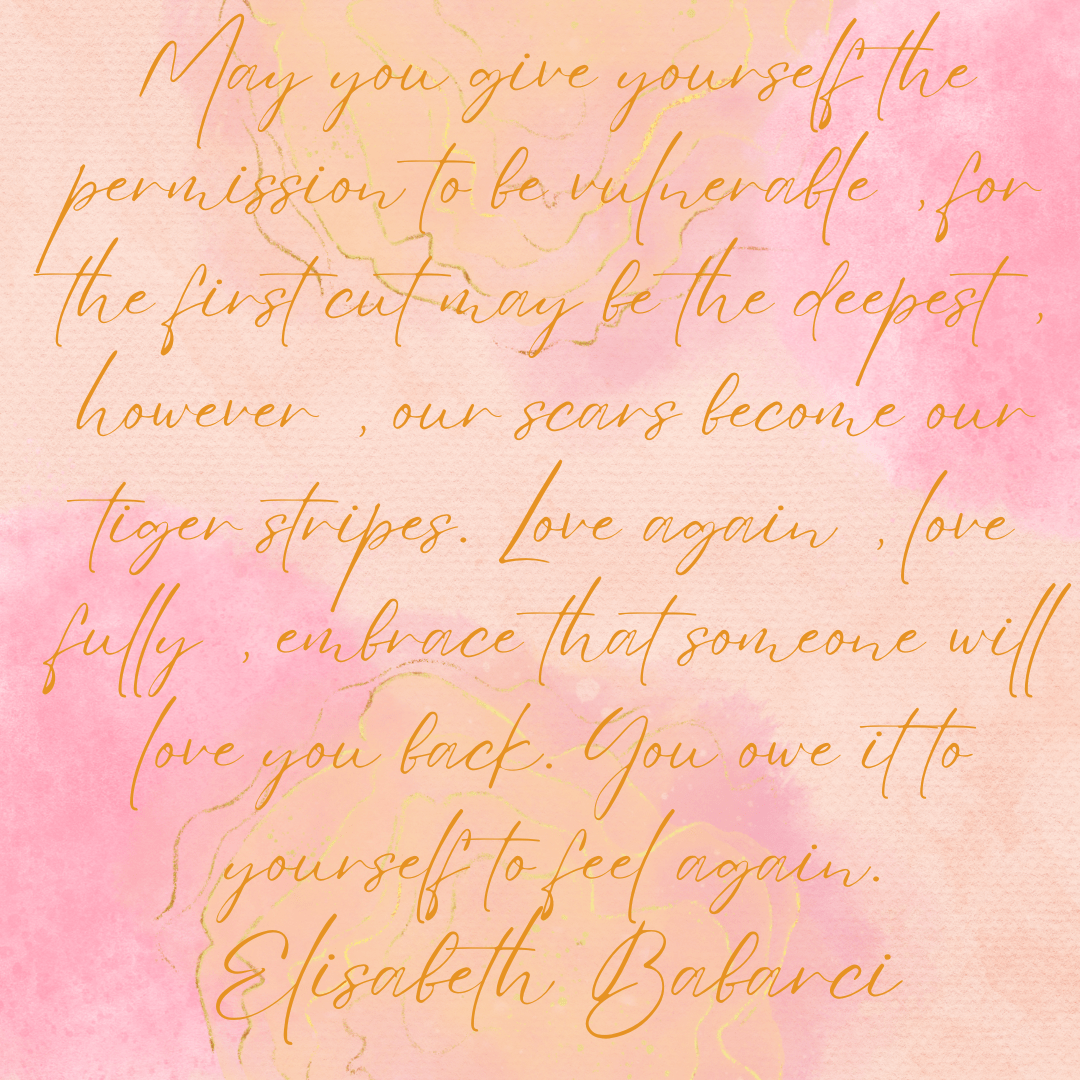 May you give yourself the
permission to be vulnerable , for
the first cut may be the deepest ,
however , our scars become our
tiger stripes. Love again , love
fully , embrace that someone will
love you back. You owe it to
yourself to feel again.
Elisabeth Babarci